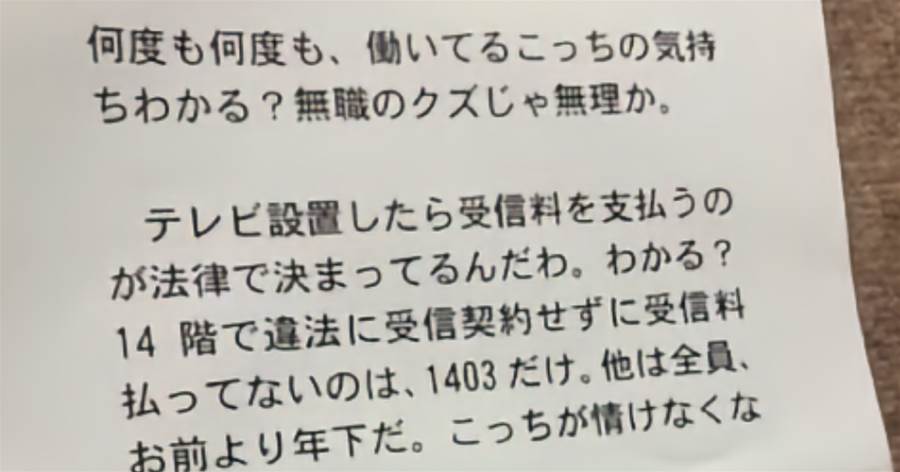 何度も何度も、働いてるこっちの気持
ちわかる？無職のクズじゃ無理か。
テレビ設置したら受信料を支払うの
が法律で決まってるんだわ。わかる？
14 階で違法に受信契約せずに受信料
払ってないのは、1403だけ。他は全員、
お前より年下だ。こっちが情けなくな